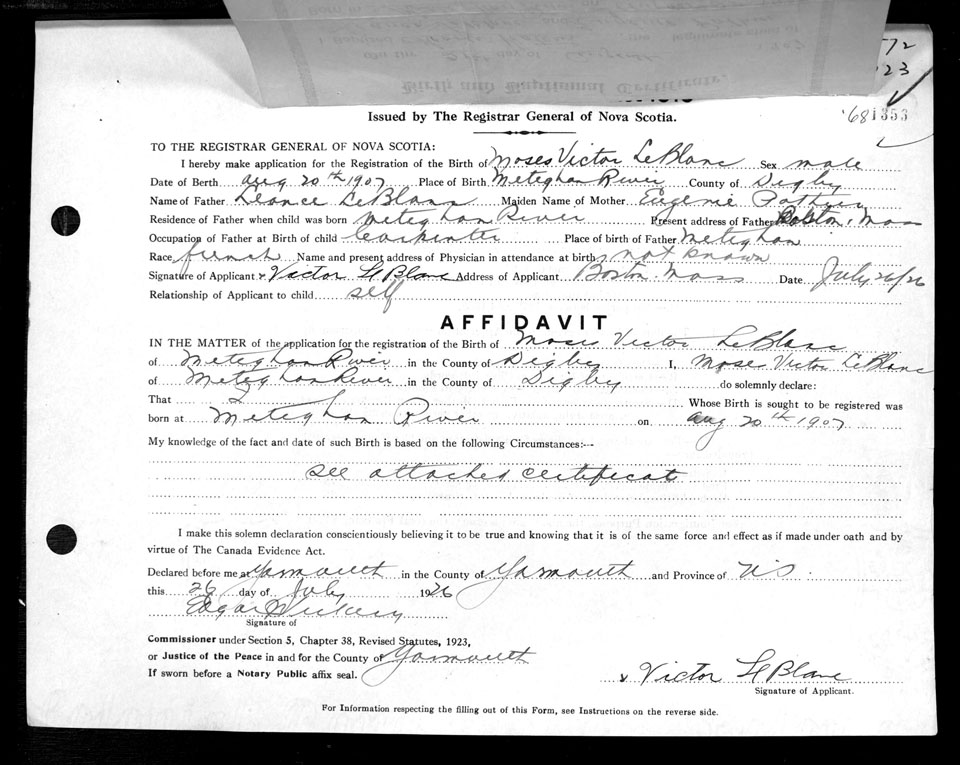 Birth and Baptismal Certificate.
572
23
'681353
Issued by The Registrar General of Nova Scotia.
TO THE REGISTRAR GENERAL OF NOVA SCOTIA:
I hereby make application for the Registration of the Birth of Moses Victor LeBlanc Sex male
Date of Birth Aug 20th 1907 Place of Birth Meteghan River County of Digby
Name of Father Leance LeBlanc Maiden Name of Mother Eugenie
Residence of Father when child was born Meteghan River Present address of Father Boston, Mass
Occupation of Father at Birth of child Carpenter Place of birth of Father Meteghan
Race french Name and present address of Physician in attendance at birth not known
Signature of Applicant x Victor LeBlanc Address of Applicant Boston Mass Date July 26/26
Relationship of Applicant to child self
AFFIDAVIT
IN THE MATTER of the application for the registration of the Birth of Moses Victor LeBlanc
of Meteghan River in the County of Digby I, Mose Victor LeBlanc
of Meteghan River in the County of Digby do solemnly declare:
That I Whose Birth is sought to be registered was
born at Meteghan River on Aug 20th 1907
My knowledge of the fact and date of such Birth is based on the following Circumstances:—
see attached certificat
I make this solemn declaration conscientiously believing it to be true and knowing that it is of the same force and effect as if made under oath and by
virtue of The Canada Evidence Act.
Declared before me at Yarmouth in the County of Yarmouth and Province of N.S.
this 26 day of July 1926
Edgar
Signature of
Commissioner under Section 5, Chapter 38, Revised Statutes, 1923,
or Justice of the Peace in and for the County of Yarmouth
If sworn before a Notary Public affix seal.
x Victor LeBlanc
Signature of Applicant.
For Information respecting the filling out of this Form, see Instructions on the reverse side.